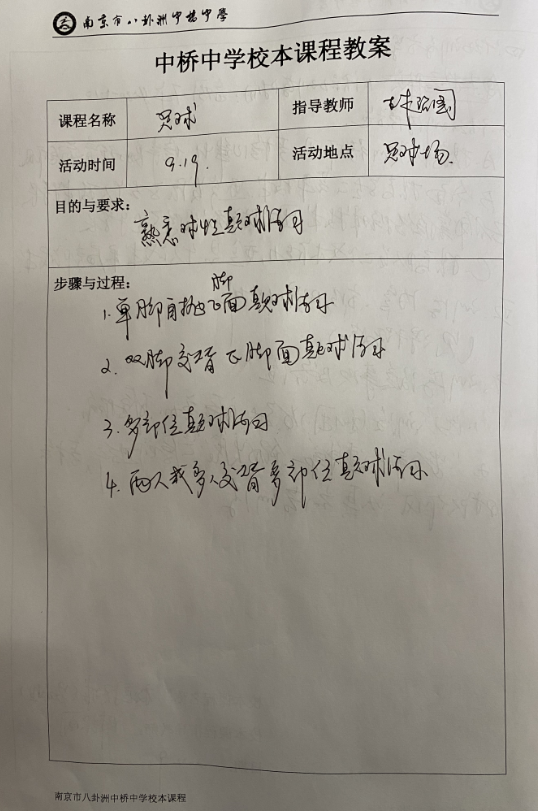 南京市八卦洲中桥中学
中桥中学校本课程教案
课程名称 足球 指导教师
活动时间 9.19. 活动地点 足球场.
目的与要求:
熟悉球性颠球练习
步骤与过程:
1. 单脚自抛正脚面颠球练习
2. 双脚交替正脚面颠球练习
3. 多部位颠球练习
4. 两人或多人交替多部位颠球练习
南京市八卦洲中桥中学校本课程